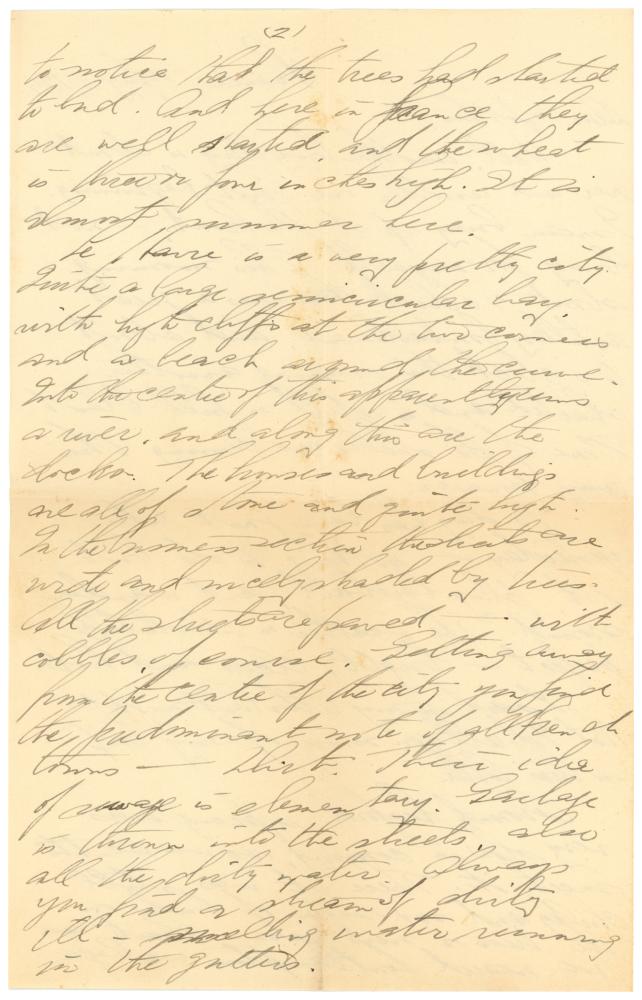 (2)
to notice that the trees had started
to bud. And here in France they
are well started, and the wheat
is three or four inches high. It is
almost summer here.
Le Havre is a very pretty city.
Quite a large semicircular bay,
with high cliffs at the two corners
and a beach around the curve.
Into the centre of this apparently runs
a river, and along this are the
docks. The houses and buildings
are all of stone and quite high.
In the business section the streets are
wide and nicely shaded by trees.
All the streets are paved — with
cobbles, of course. Getting away
from the centre of the city you find
the predominant note of all French
towns — Dirt. Their idea
of sewage is elementary. Garbage
is thrown into the streets, also
all the dirty water. Always
you find a stream of dirty
ill-smelling water running
in the gutters.